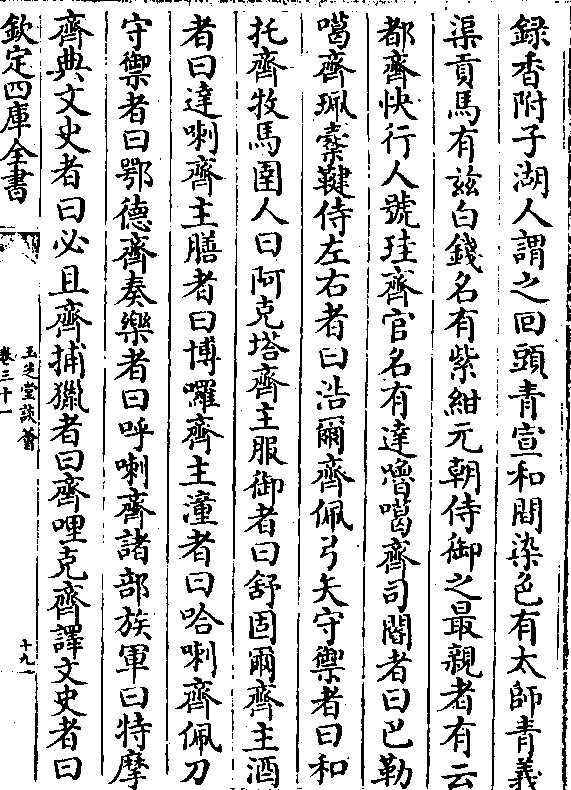 録香附子湖人謂之回頭青宣和間染色有太師青義
渠貢馬有兹白錢名有紫紺元朝侍御之最親者有云
都齊快行人號珪齊官名有達嚕噶齊司閽者曰巴勒
噶齊珮櫜鞬侍左右者曰浩爾齊佩弓矢守禦者曰和
托齊牧馬圉人曰阿克塔齊主服御者曰舒固爾齊主酒
者曰達喇齊主膳者曰博囉齊主湩者曰哈喇齊佩刀
守禦者曰鄂德齊奏樂者曰呼喇齊諸部族軍曰特摩
齊典文史者曰必且齊捕獵者曰齊哩克齊譯文史者曰
欽定四庫全書
玉芝堂談薈
卷三十一
十九